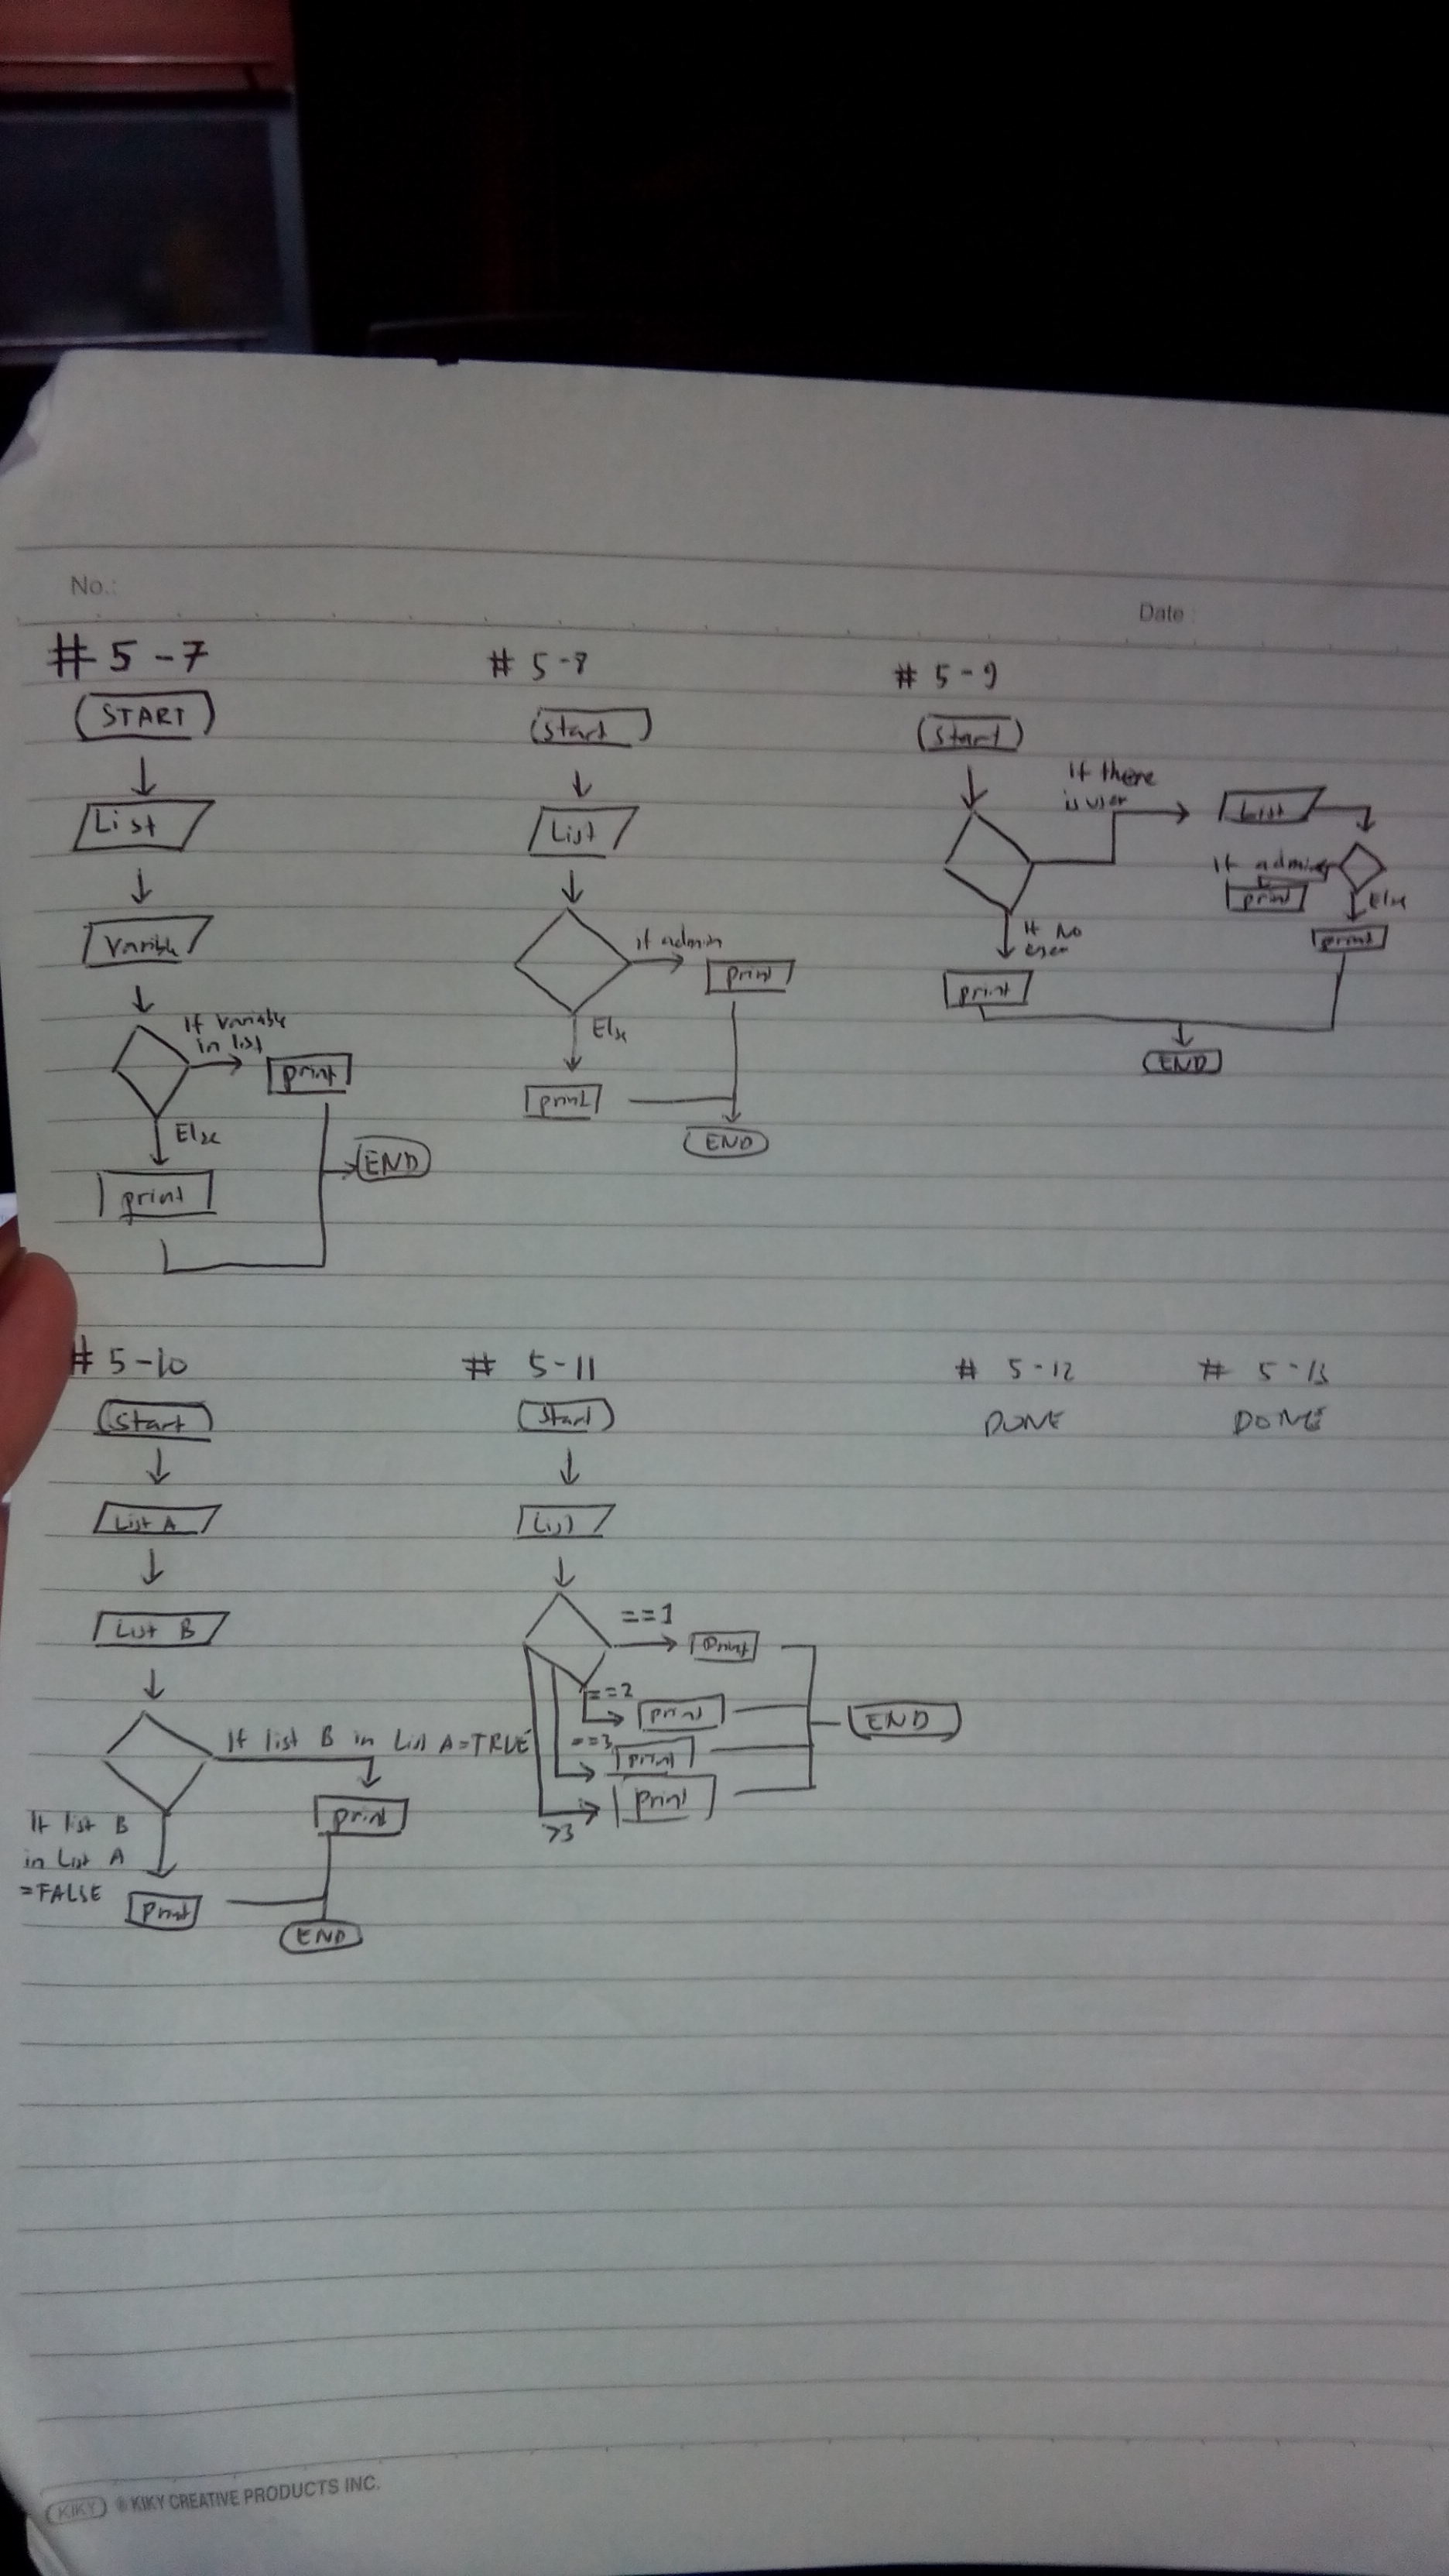 No.:
Date
# 5-7
(START)
List
Variable
If Variable
in list
print
Else
END
print
# 5-8
Start
List
if admin
print
Else
print
END
# 5-9
Start
If there
is user
List
If admin
print
Else
print
If No
user
print
END
# 5-10
Start
List A
List B
If list B in List A=TRUE
print
If list B
in List A
=FALSE
print
END
# 5-11
Start
List
==1
print
==2
print
==3
print
>3
print
END
# 5-12
DONE
# 5-13
DONE
KIKY ® KIKY CREATIVE PRODUCTS INC.